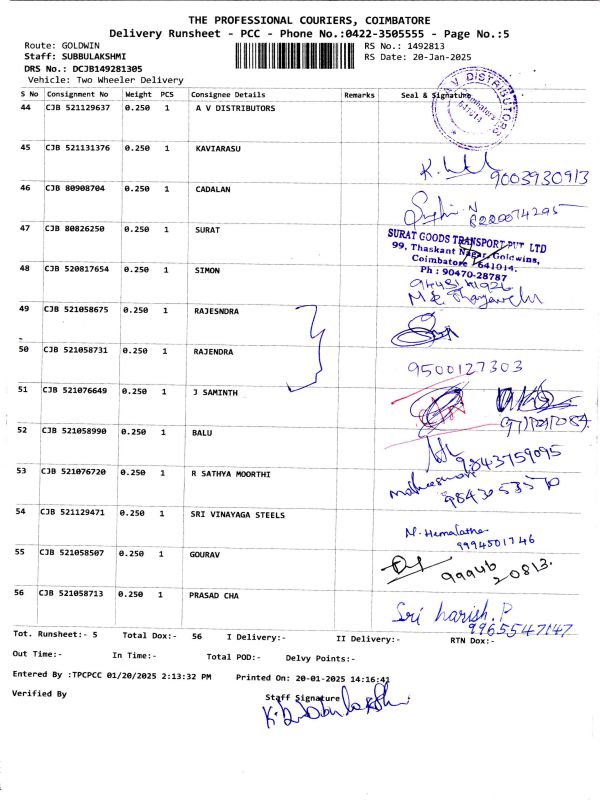 THE PROFESSIONAL COURIERS, COIMBATORE
Delivery Runsheet - PCC - Phone No.:0422-3505555 - Page No.:5
Route: GOLDWIN RS No.: 1492813
Staff: SUBBULAKSHMI RS Date: 20-Jan-2025
DRS No.: DCJB149281305
Vehicle: Two Wheeler Delivery
S No Consignment No Weight PCS Consignee Details Remarks Seal & Signature
44 CJB 521129637 0.250 1 A V DISTRIBUTORS
A V DISTRIBUTORS
Coimbatore
641014
45 CJB 521131376 0.250 1 KAVIARASU
9003930913
46 CJB 80908704 0.250 1 CADALAN
8220074295
47 CJB 80826250 0.250 1 SURAT
SURAT GOODS TRANSPORT PVT LTD
99, Thaskant Nagar, Goldwins,
Coimbatore - 641014.
Ph : 90470-28787
48 CJB 520817654 0.250 1 SIMON
49 CJB 521058675 0.250 1 RAJESNDRA
50 CJB 521058731 0.250 1 RAJENDRA
9500127303
51 CJB 521076649 0.250 1 J SAMINTH
52 CJB 521058990 0.250 1 BALU
9843759095
53 CJB 521076720 0.250 1 R SATHYA MOORTHI
54 CJB 521129471 0.250 1 SRI VINAYAGA STEELS
N. Hemalatha
9994501746
55 CJB 521058507 0.250 1 GOURAV
99946
20813.
56 CJB 521058713 0.250 1 PRASAD CHA
Sri harish. P
9965547147
Tot. Runsheet:- 5 Total Dox:- 56 I Delivery:- II Delivery:- RTN Dox:-
Out Time:- In Time:- Total POD:- Delvy Points:-
Entered By :TPCPCC 01/20/2025 2:13:32 PM Printed On: 20-01-2025 14:16:41
Verified By Staff Signature
K. Subbulakshmi